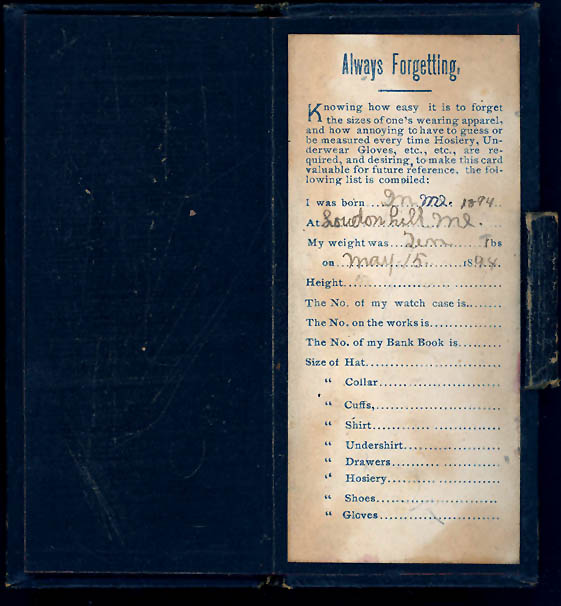 Always Forgetting.
Knowing how easy it is to forget
the sizes of one's wearing apparel,
and how annoying to have to guess or
be measured every time Hosiery, Un-
derwear Gloves, etc., etc., are re-
quired, and desiring, to make this card
valuable for future reference, the fol-
lowing list is compiled:
I was born In Me. 1894
At Loudon hill Me.
My weight was Ten lbs
on May 15 1894.
Height
The No. of my watch case is
The No. on the works is
The No. of my Bank Book is
Size of Hat
" Collar
" Cuffs,
" Shirt
" Undershirt
" Drawers
" Hosiery
" Shoes
" Gloves